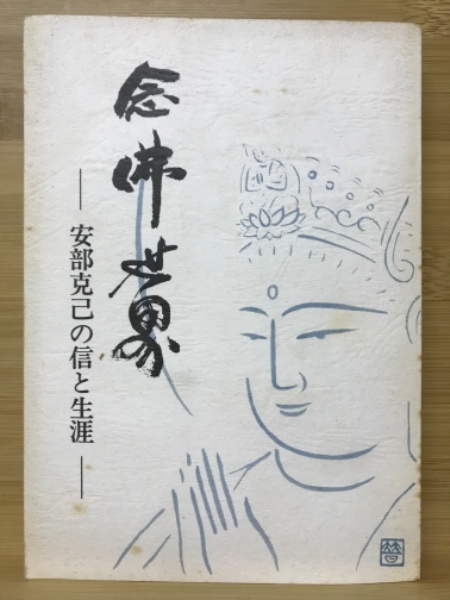 念佛世界
― 安部克己の信と生涯 ―